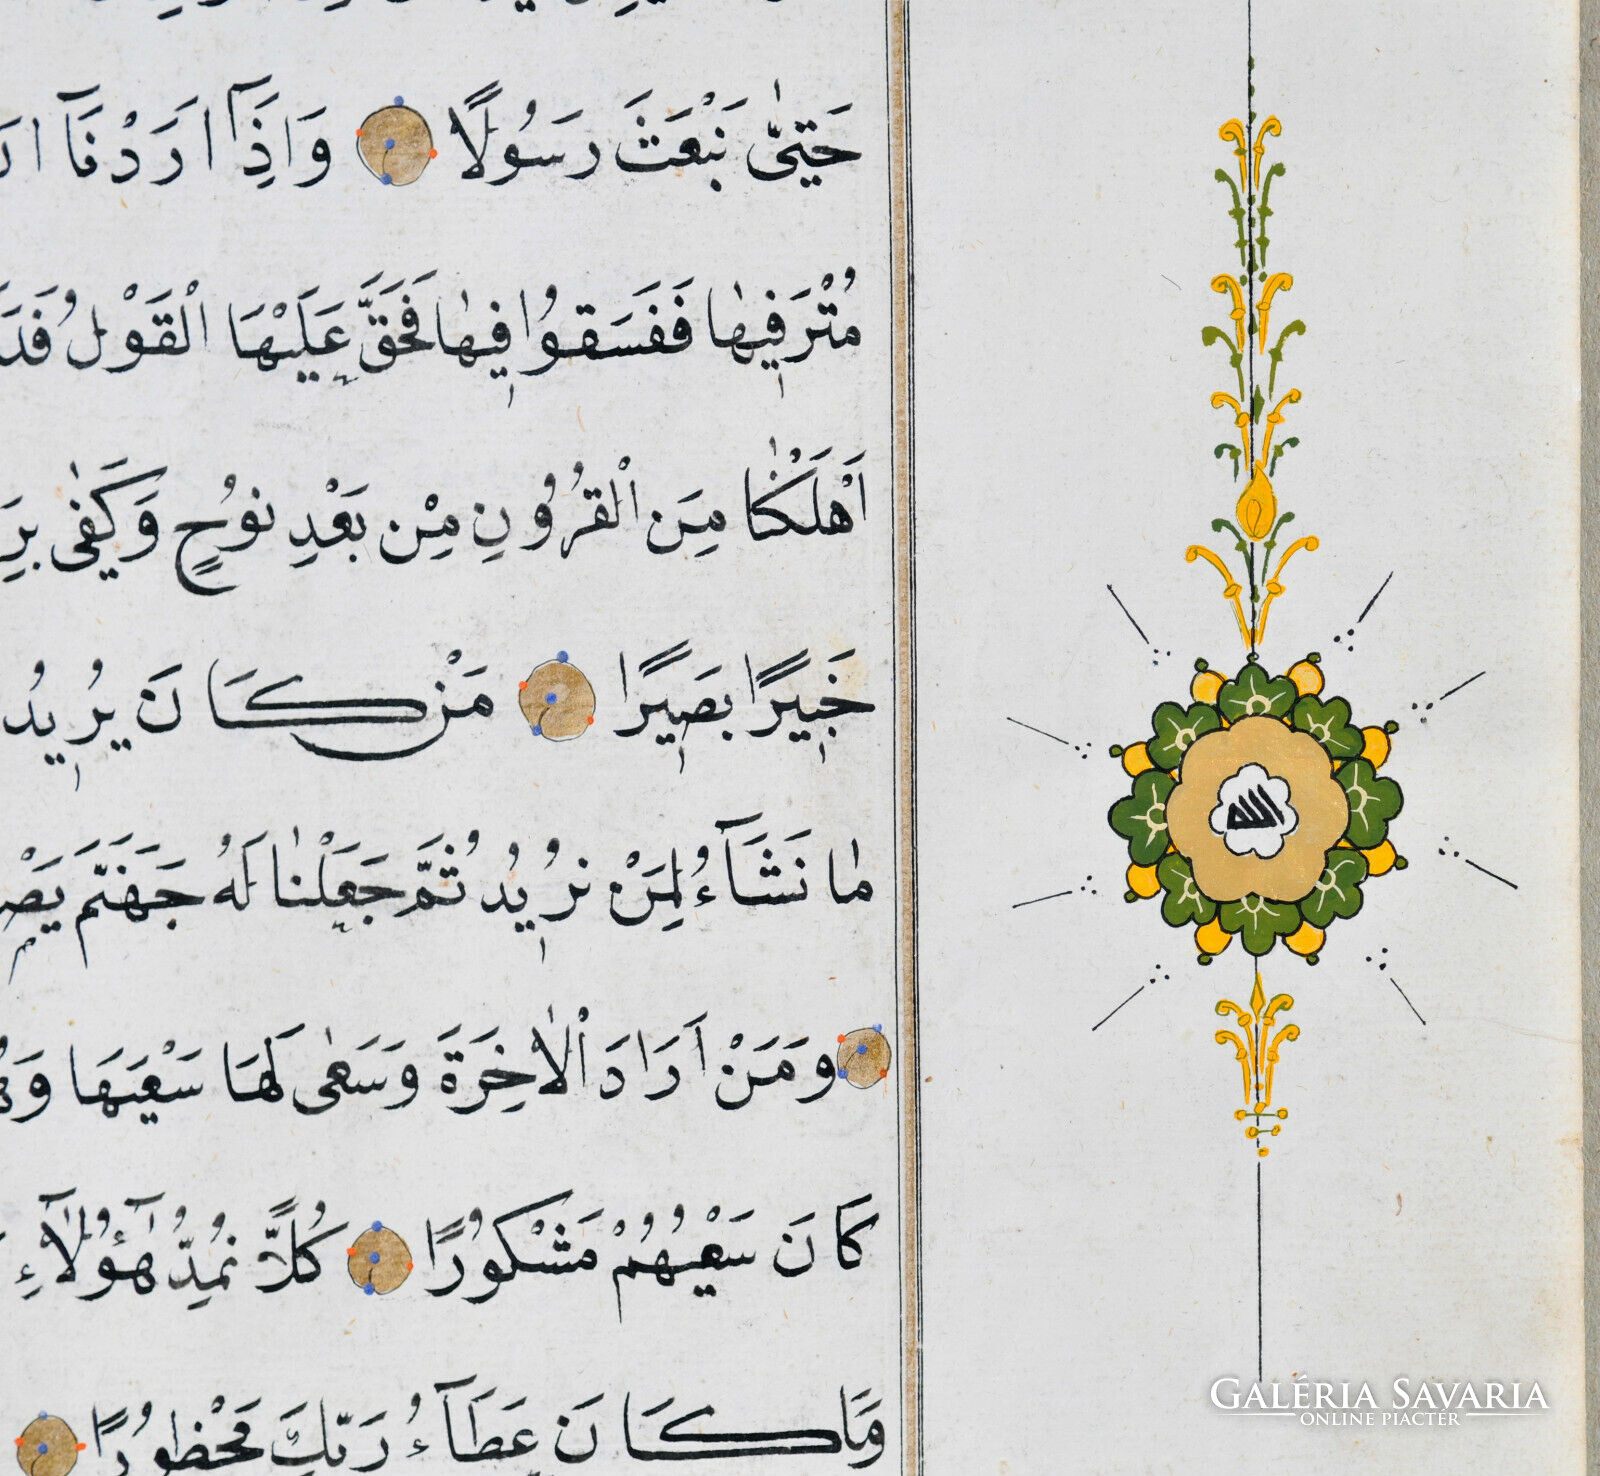 حَتّٰى نَبْعَثَ رَسُولًا وَاِذَٓا اَرَدْنَٓا
مُتْرَفٖيهَا فَفَسَقُوا فٖيهَا فَحَقَّ عَلَيْهَا الْقَوْلُ
اَهْلَكْنَا مِنَ الْقُرُونِ مِنْ بَعْدِ نُوحٍ وَكَفٰى
خَبٖيرًا بَصٖيرًا مَنْ كَانَ يُرٖيدُ
مَا نَشَٓاءُ لِمَنْ نُرٖيدُ ثُمَّ جَعَلْنَا لَهُ جَهَنَّمَ
وَمَنْ اَرَادَ الْاٰخِرَةَ وَسَعٰى لَهَا سَعْيَهَا
كَانَ سَعْيُهُمْ مَشْكُورًا كُلًّا نُمِدُّ هٰٓؤُلَٓاءِ
وَمَا كَانَ عَطَٓاءُ رَبِّكَ مَحْظُورًا
الله
GALÉRIA SAVARIA
ONLINE PIACTÉR